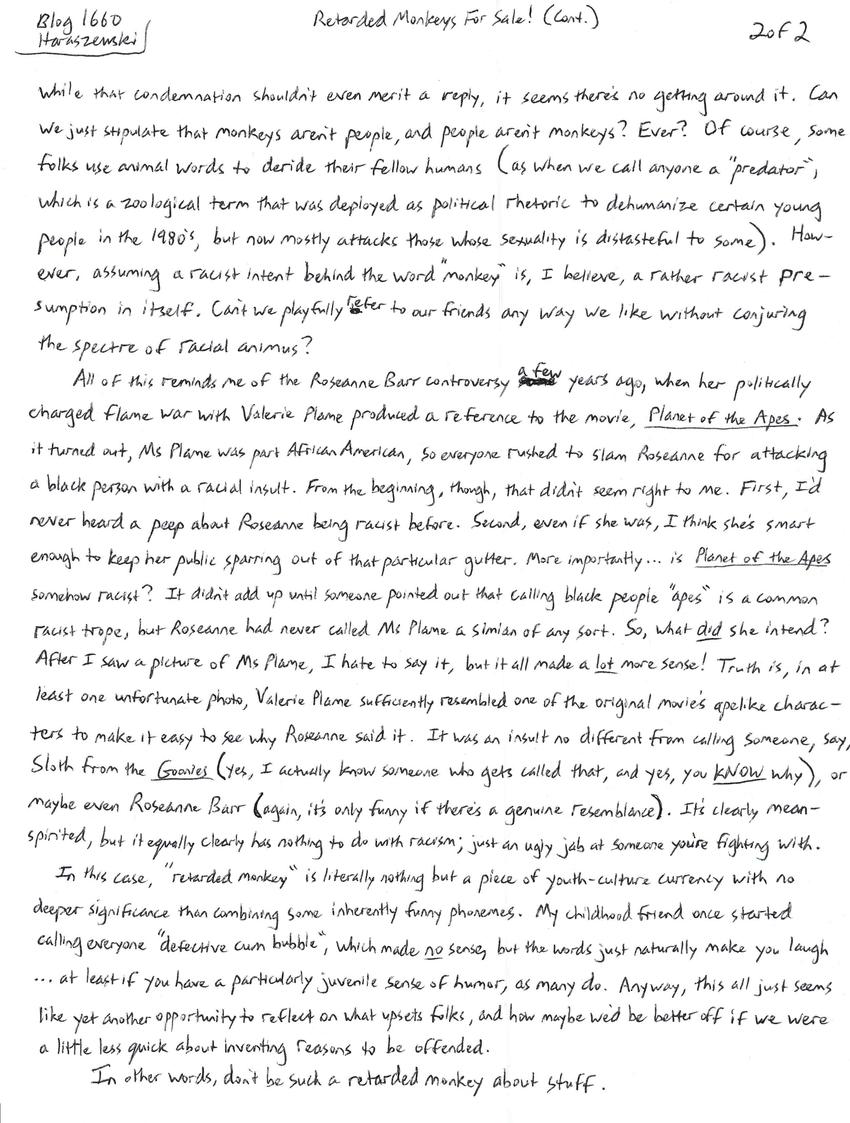 Blog 1660
Haraszewski
Retarded Monkeys For Sale! (Cont.)
2 of 2
While that condemnation shouldn't even merit a reply, it seems there's no getting around it. Can
we just stipulate that monkeys aren't people, and people aren't monkeys? Ever? Of course, some
folks use animal words to deride their fellow humans (as when we call anyone a "predator",
which is a zoological term that was deployed as political rhetoric to dehumanize certain young
people in the 1980's, but now mostly attacks those whose sexuality is distasteful to some). How-
ever, assuming a racist intent behind the word "monkey" is, I believe, a rather racist pre-
sumption in itself. Can't we playfully refer to our friends any way we like without conjuring
the spectre of racial animus?
All of this reminds me of the Roseanne Barr controversy a few years ago, when her politically
charged flame war with Valerie Plame produced a reference to the movie, Planet of the Apes. As
it turned out, Ms Plame was part African American, so everyone rushed to slam Roseanne for attacking
a black person with a racial insult. From the beginning, though, that didn't seem right to me. First, I'd
never heard a peep about Roseanne being racist before. Second, even if she was, I think she's smart
enough to keep her public sparring out of that particular gutter. More importantly... is Planet of the Apes
somehow racist? It didn't add up until someone pointed out that calling black people "apes" is a common
racist trope, but Roseanne had never called Ms Plame a simian of any sort. So, what did she intend?
After I saw a picture of Ms Plame, I hate to say it, but it all made a lot more sense! Truth is, in at
least one unfortunate photo, Valerie Plame sufficiently resembled one of the original movie's apelike charac-
ters to make it easy to see why Roseanne said it. It was an insult no different from calling someone, say,
Sloth from the Goonies (yes, I actually know someone who gets called that, and yes, you KNOW why), or
maybe even Roseanne Barr (again, it's only funny if there's a genuine resemblance). It's clearly mean-
spirited, but it equally clearly has nothing to do with racism; just an ugly jab at someone you're fighting with.
In this case, "retarded monkey" is literally nothing but a piece of youth-culture currency with no
deeper significance than combining some inherently funny phonemes. My childhood friend once started
calling everyone "defective cum bubble", which made no sense, but the words just naturally make you laugh
... at least if you have a particularly juvenile sense of humor, as many do. Anyway, this all just seems
like yet another opportunity to reflect on what upsets folks, and how maybe we'd be better off if we were
a little less quick about inventing reasons to be offended.
In other words, don't be such a retarded monkey about stuff.